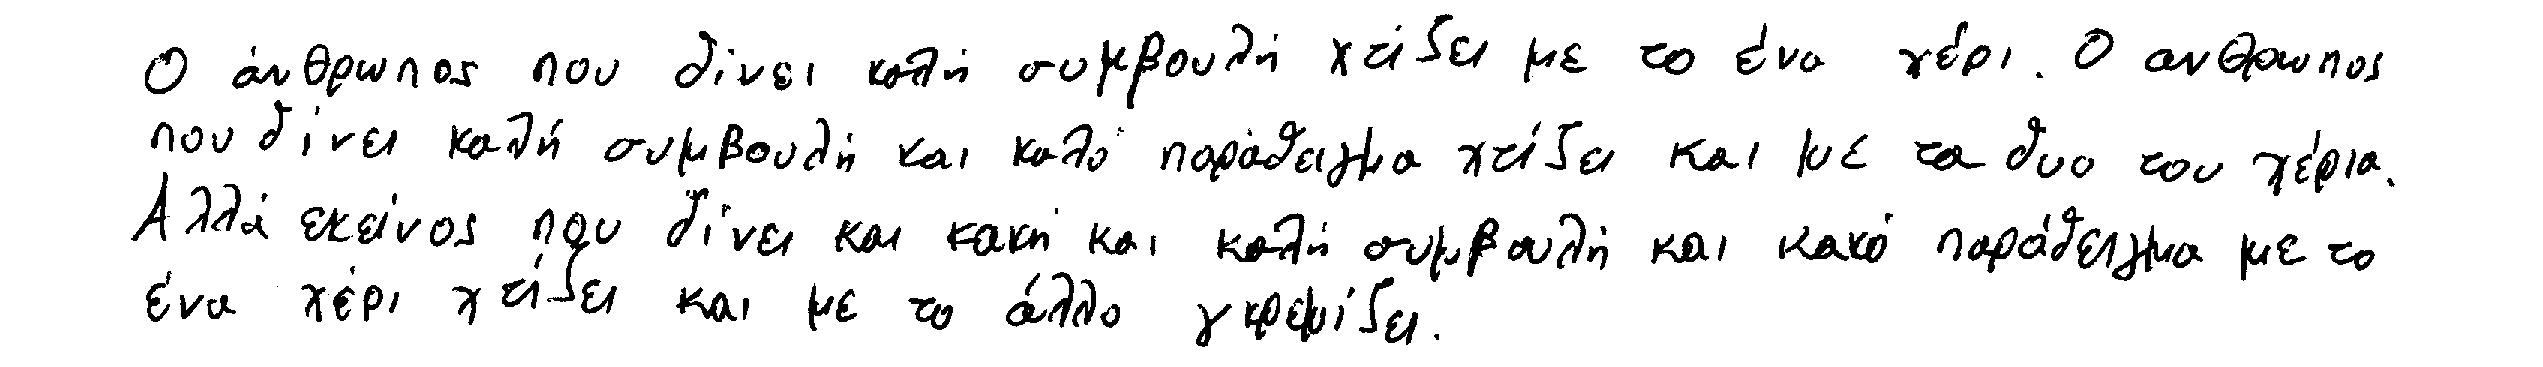 Ο άνθρωπος που δίνει καλή συμβουλή χτίζει με το ένα χέρι. Ο ανθρωπος
που δίνει καλή συμβουλή και καλό παράδειγμα χτίζει και με τα δυο του χέρια.
Αλλά εκείνος που δίνει και κακή και καλή συμβουλή και κακό παράδειγμα με το
ένα χέρι χτίζει και με το άλλο γκρεμίζει.